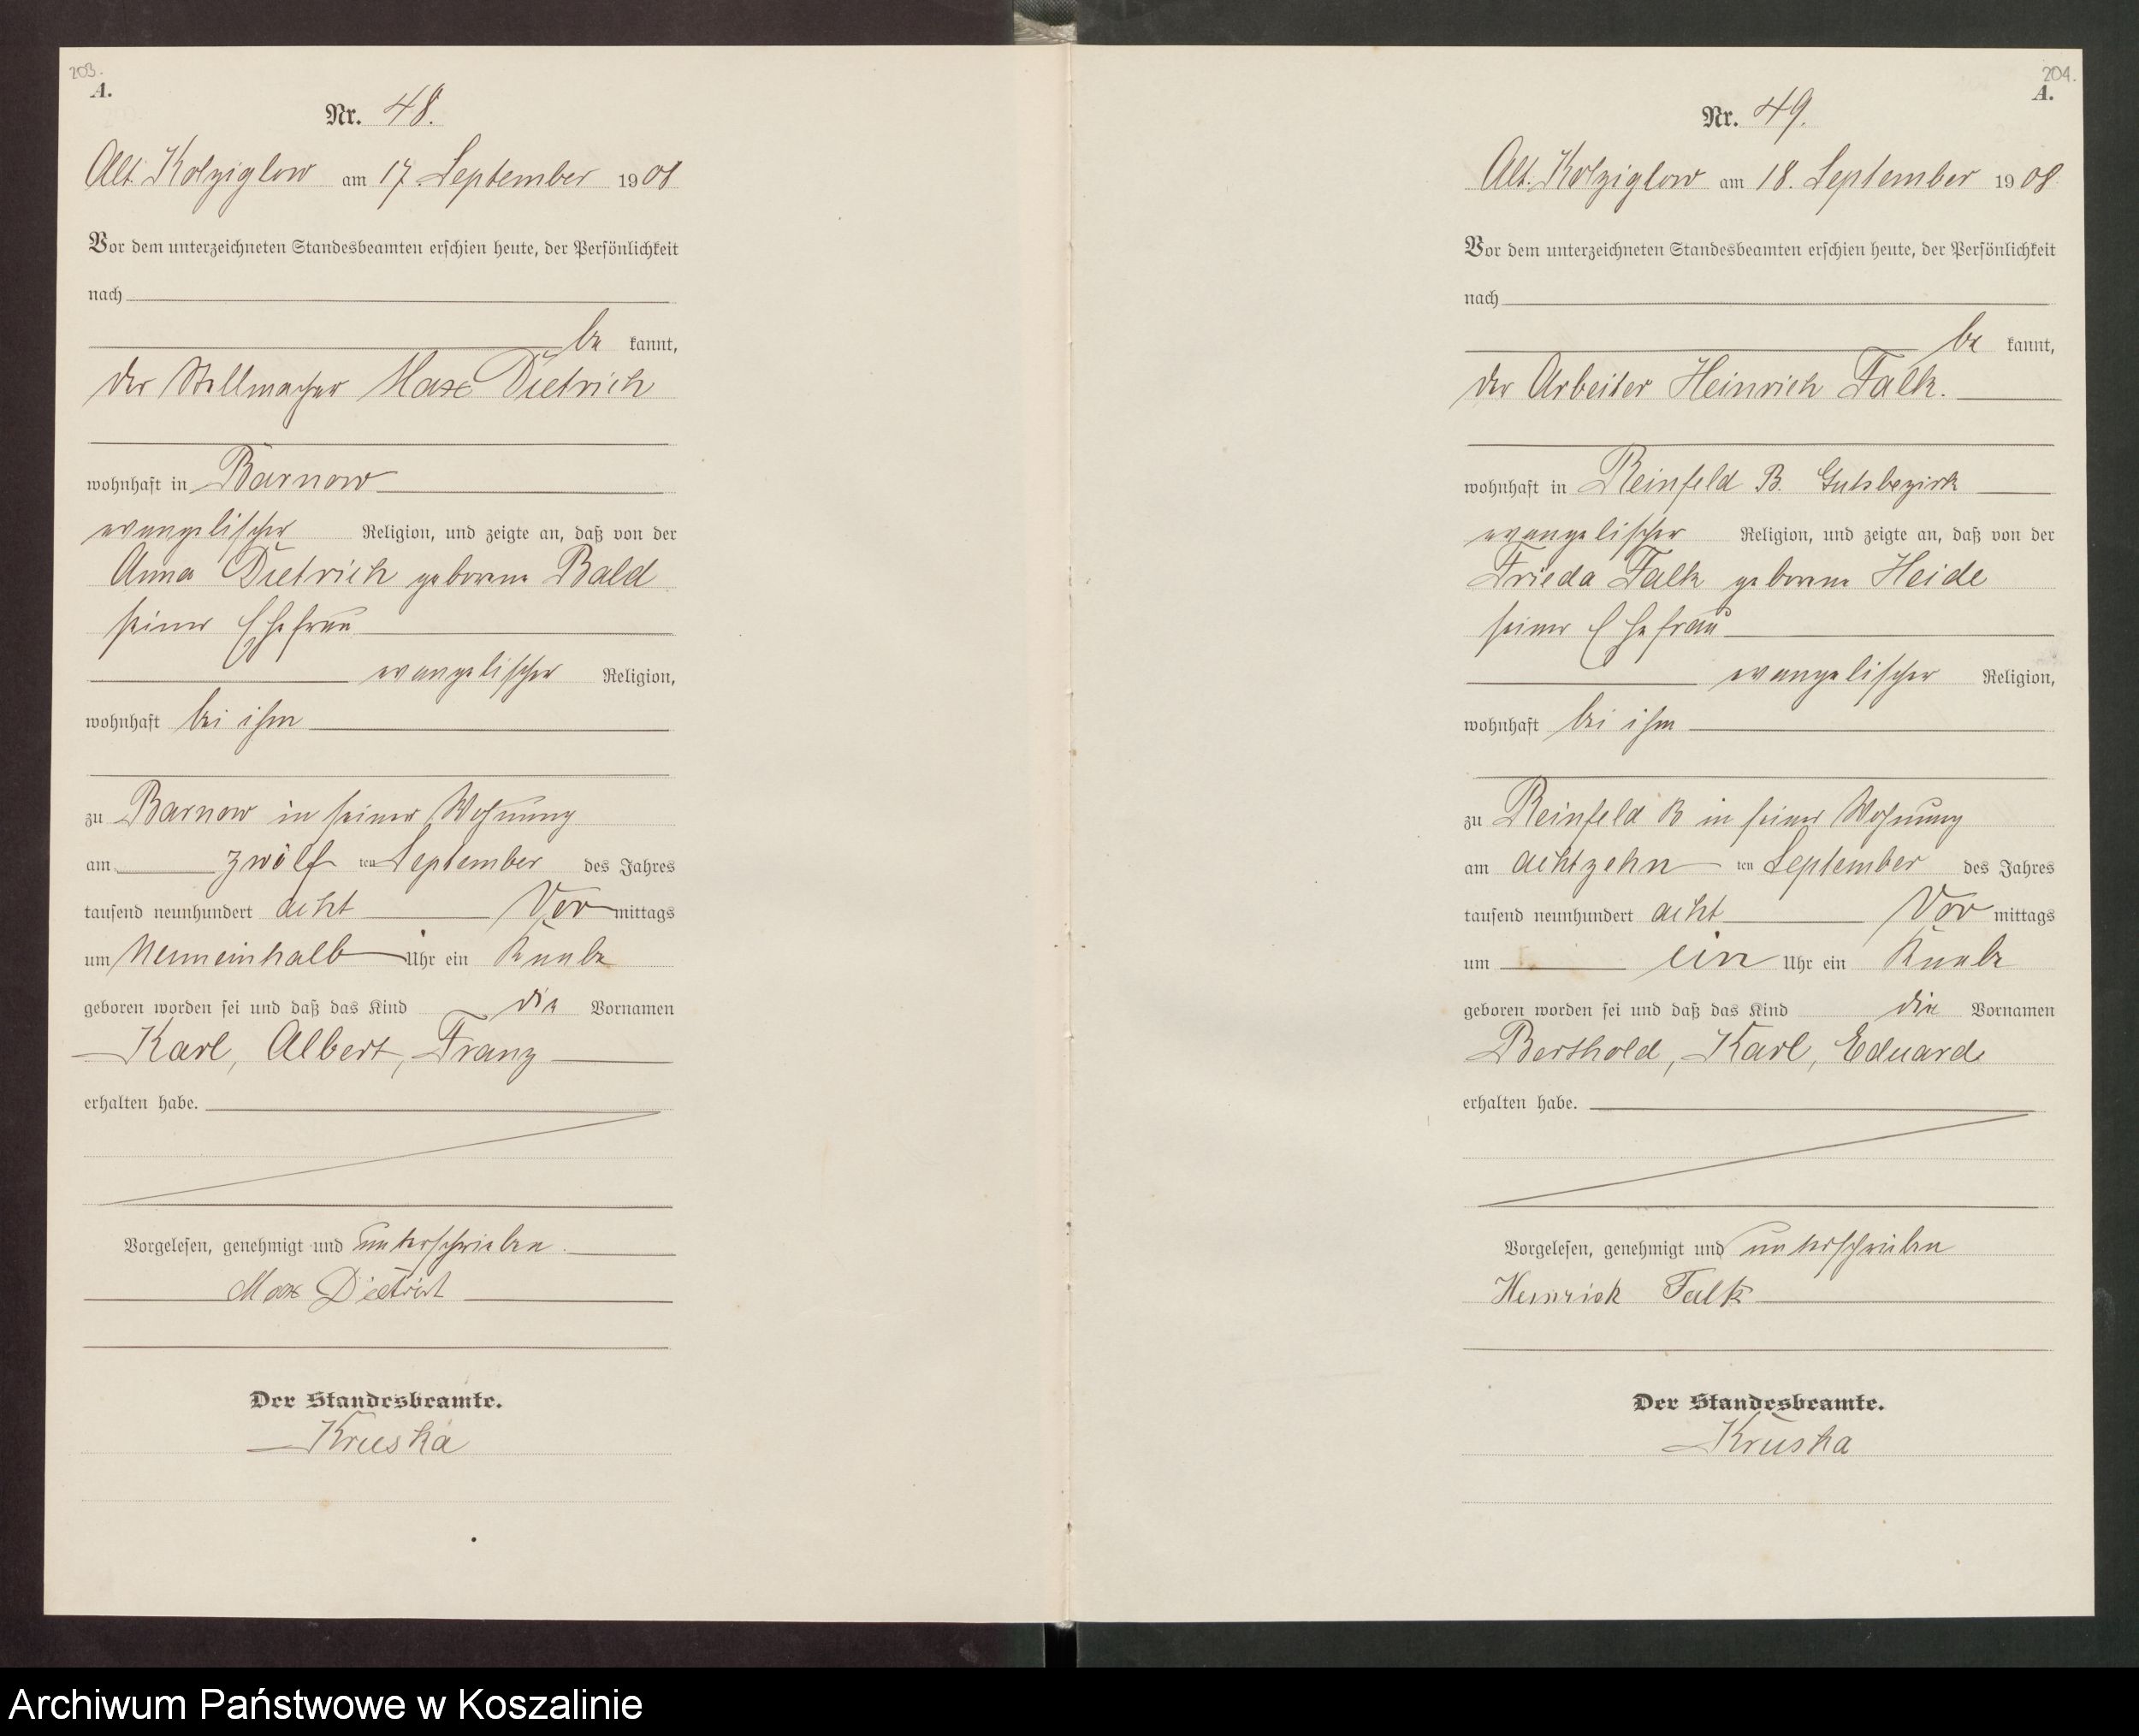 203.
A.
Nr. 48.
Alt. Kolziglow am 17. September 1908
Vor dem unterzeichneten Standesbeamten erschien heute, der Persönlichkeit
nach
be kannt,
der Stellmacher Max Dietrich
wohnhaft in Barnow
evangelischer Religion, und zeigte an, daß von der
Anna Dietrich geborene Bald
seiner Ehefrau
evangelischer Religion,
wohnhaft bei ihm
zu Barnow in seiner Wohnung
am zwölf ten September des Jahres
tausend neunhundert acht Vor mittags
um Neuneinhalb Uhr ein Knabe
geboren worden sei und daß das Kind die Vornamen
Karl, Albert, Franz
erhalten habe.
Vorgelesen, genehmigt und unterschrieben.
Max Dietrich
Der Standesbeamte.
Kruska
204.
A.
Nr. 49.
Alt. Kolziglow am 18. September 1908
Vor dem unterzeichneten Standesbeamten erschien heute, der Persönlichkeit
nach
be kannt,
der Arbeiter Heinrich Falk.
wohnhaft in Reinfeld B. Gutsbezirk
evangelischer Religion, und zeigte an, daß von der
Frieda Falk geborene Heide
seiner Ehefrau
evangelischer Religion,
wohnhaft bei ihm
zu Reinfeld B in seiner Wohnung
am achtzehn ten September des Jahres
tausend neunhundert acht Vor mittags
um ein Uhr ein Knabe
geboren worden sei und daß das Kind die Vornamen
Berthold, Karl, Eduard
erhalten habe.
Vorgelesen, genehmigt und unterschrieben
Heinrich Falk
Der Standesbeamte.
Kruska
Archiwum Państwowe w Koszalinie